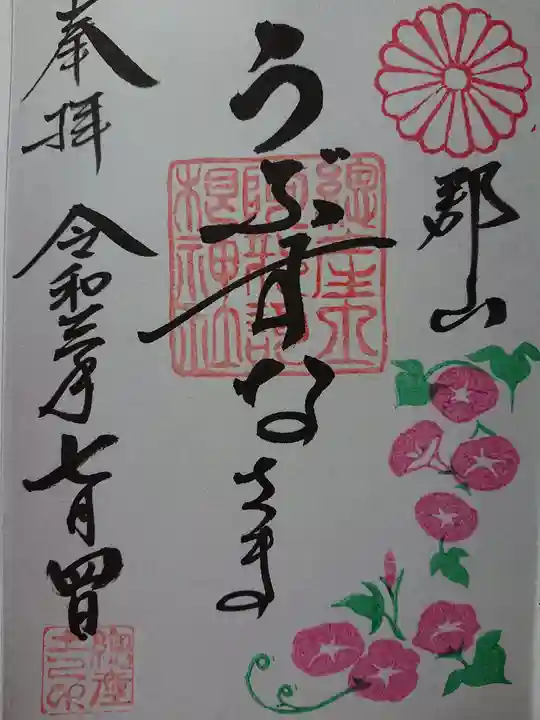 郡山
うぶすな
さま
奉拝
令和三年
七月四日